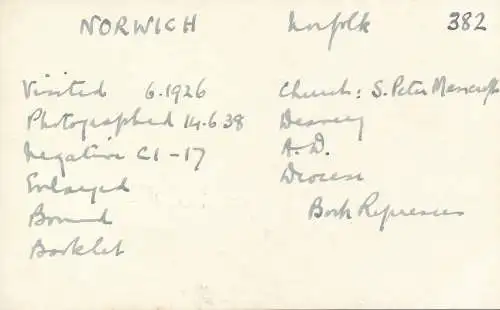 NORWICH Norfolk 382
Visited 6.1926 Church: S. Peter Mancroft
Photographed 14.6.38 Deanery
Negative C1-17 A.D.
Enlarged Diocese
Bound Book References
Booklet